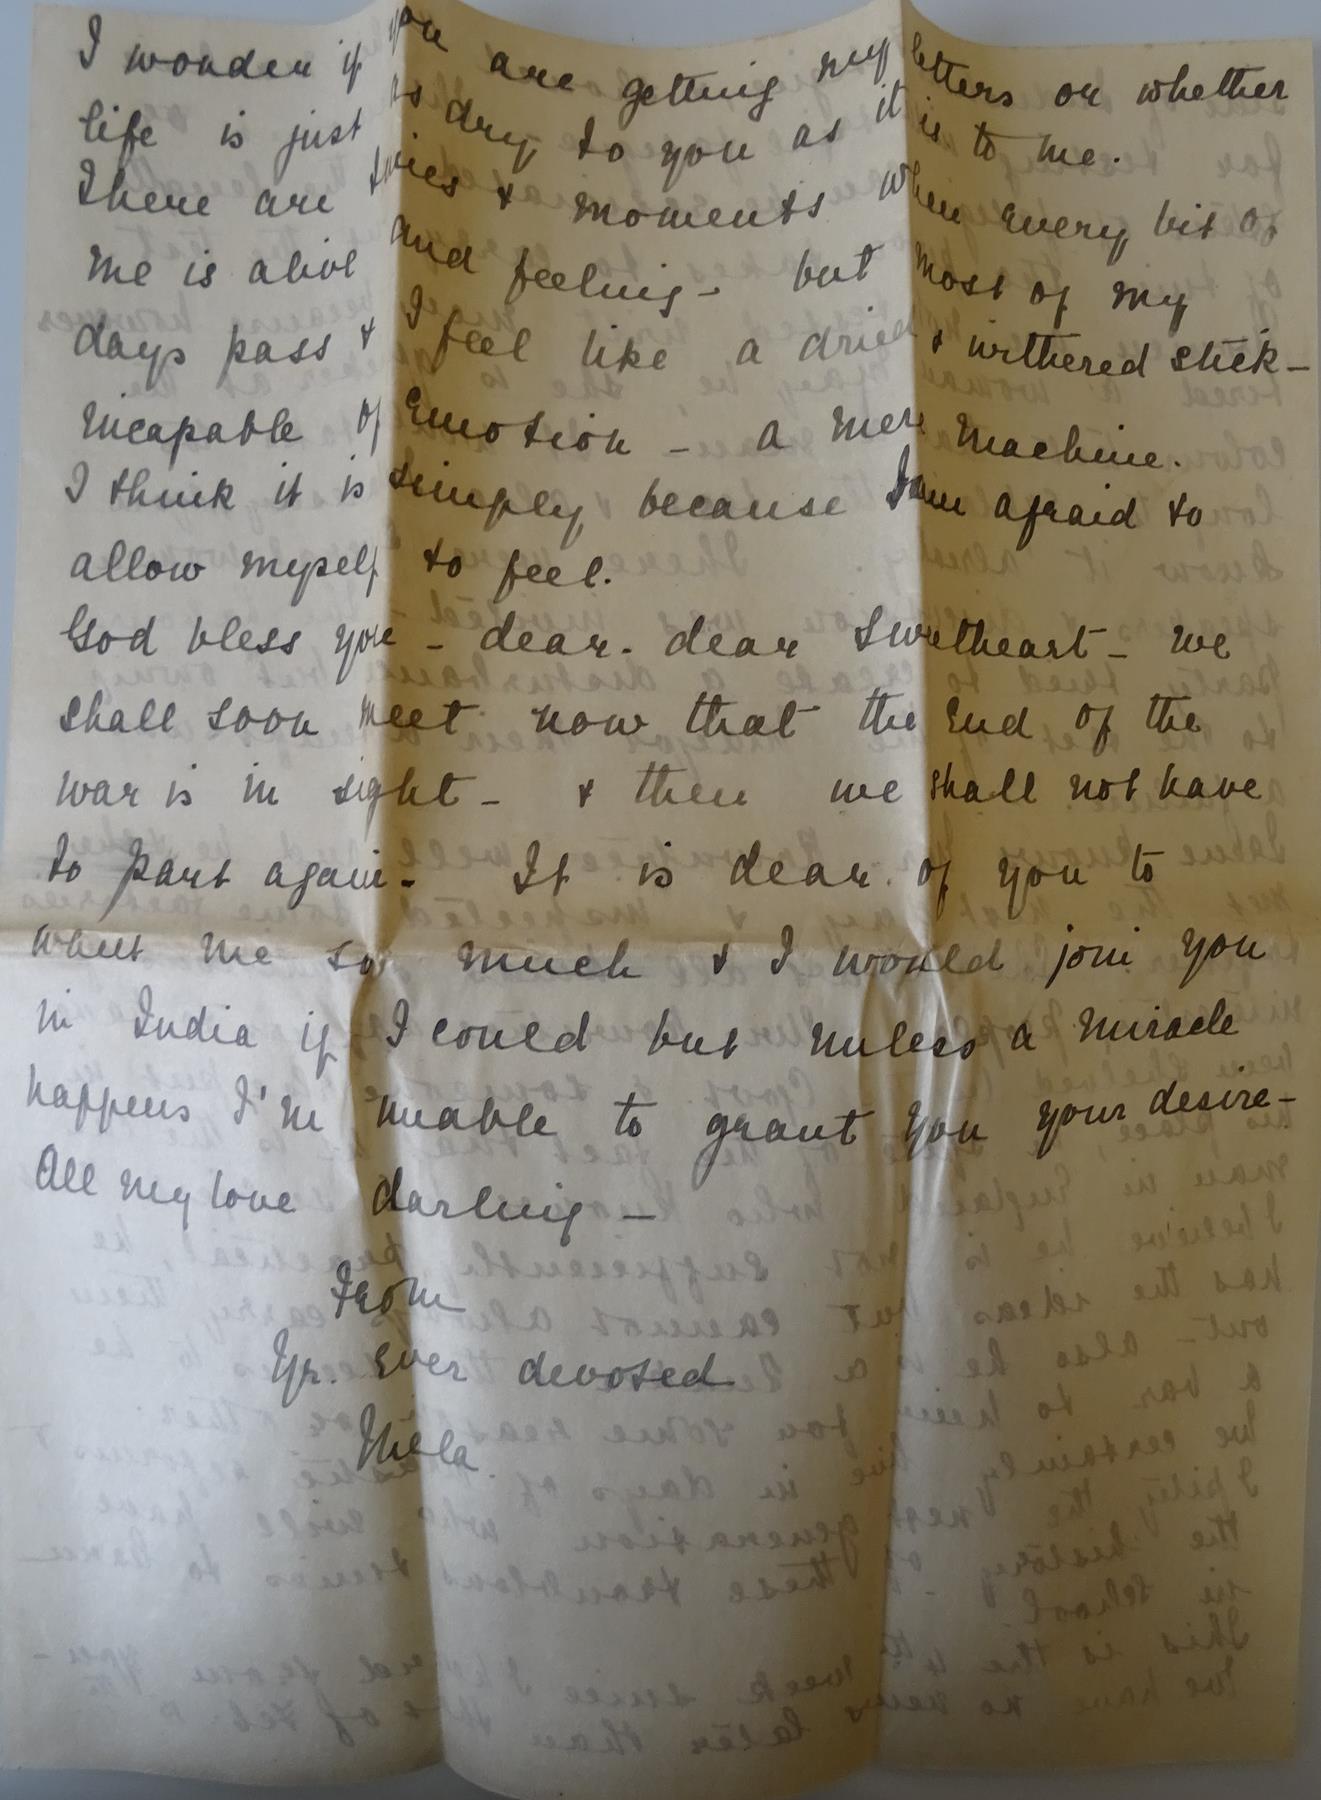 I wonder if you are getting my letters or whether
life is just as dry to you as it is to me.
There are times & moments when every bit of
me is alive and feeling - but most of my
days pass & I feel like a dried & withered stick -
incapable of emotion - a mere machine.
I think it is simply because I am afraid to
allow myself to feel.
God bless you - dear. dear Sweetheart - we
shall soon meet now that the end of the
war is in sight - & then we shall not have
to part again. It is dear of you to
want me so much & I would join you
in India if I could but unless a miracle
happens I'm unable to grant you your desire -
All my love darling -
From
Yr. Ever devoted